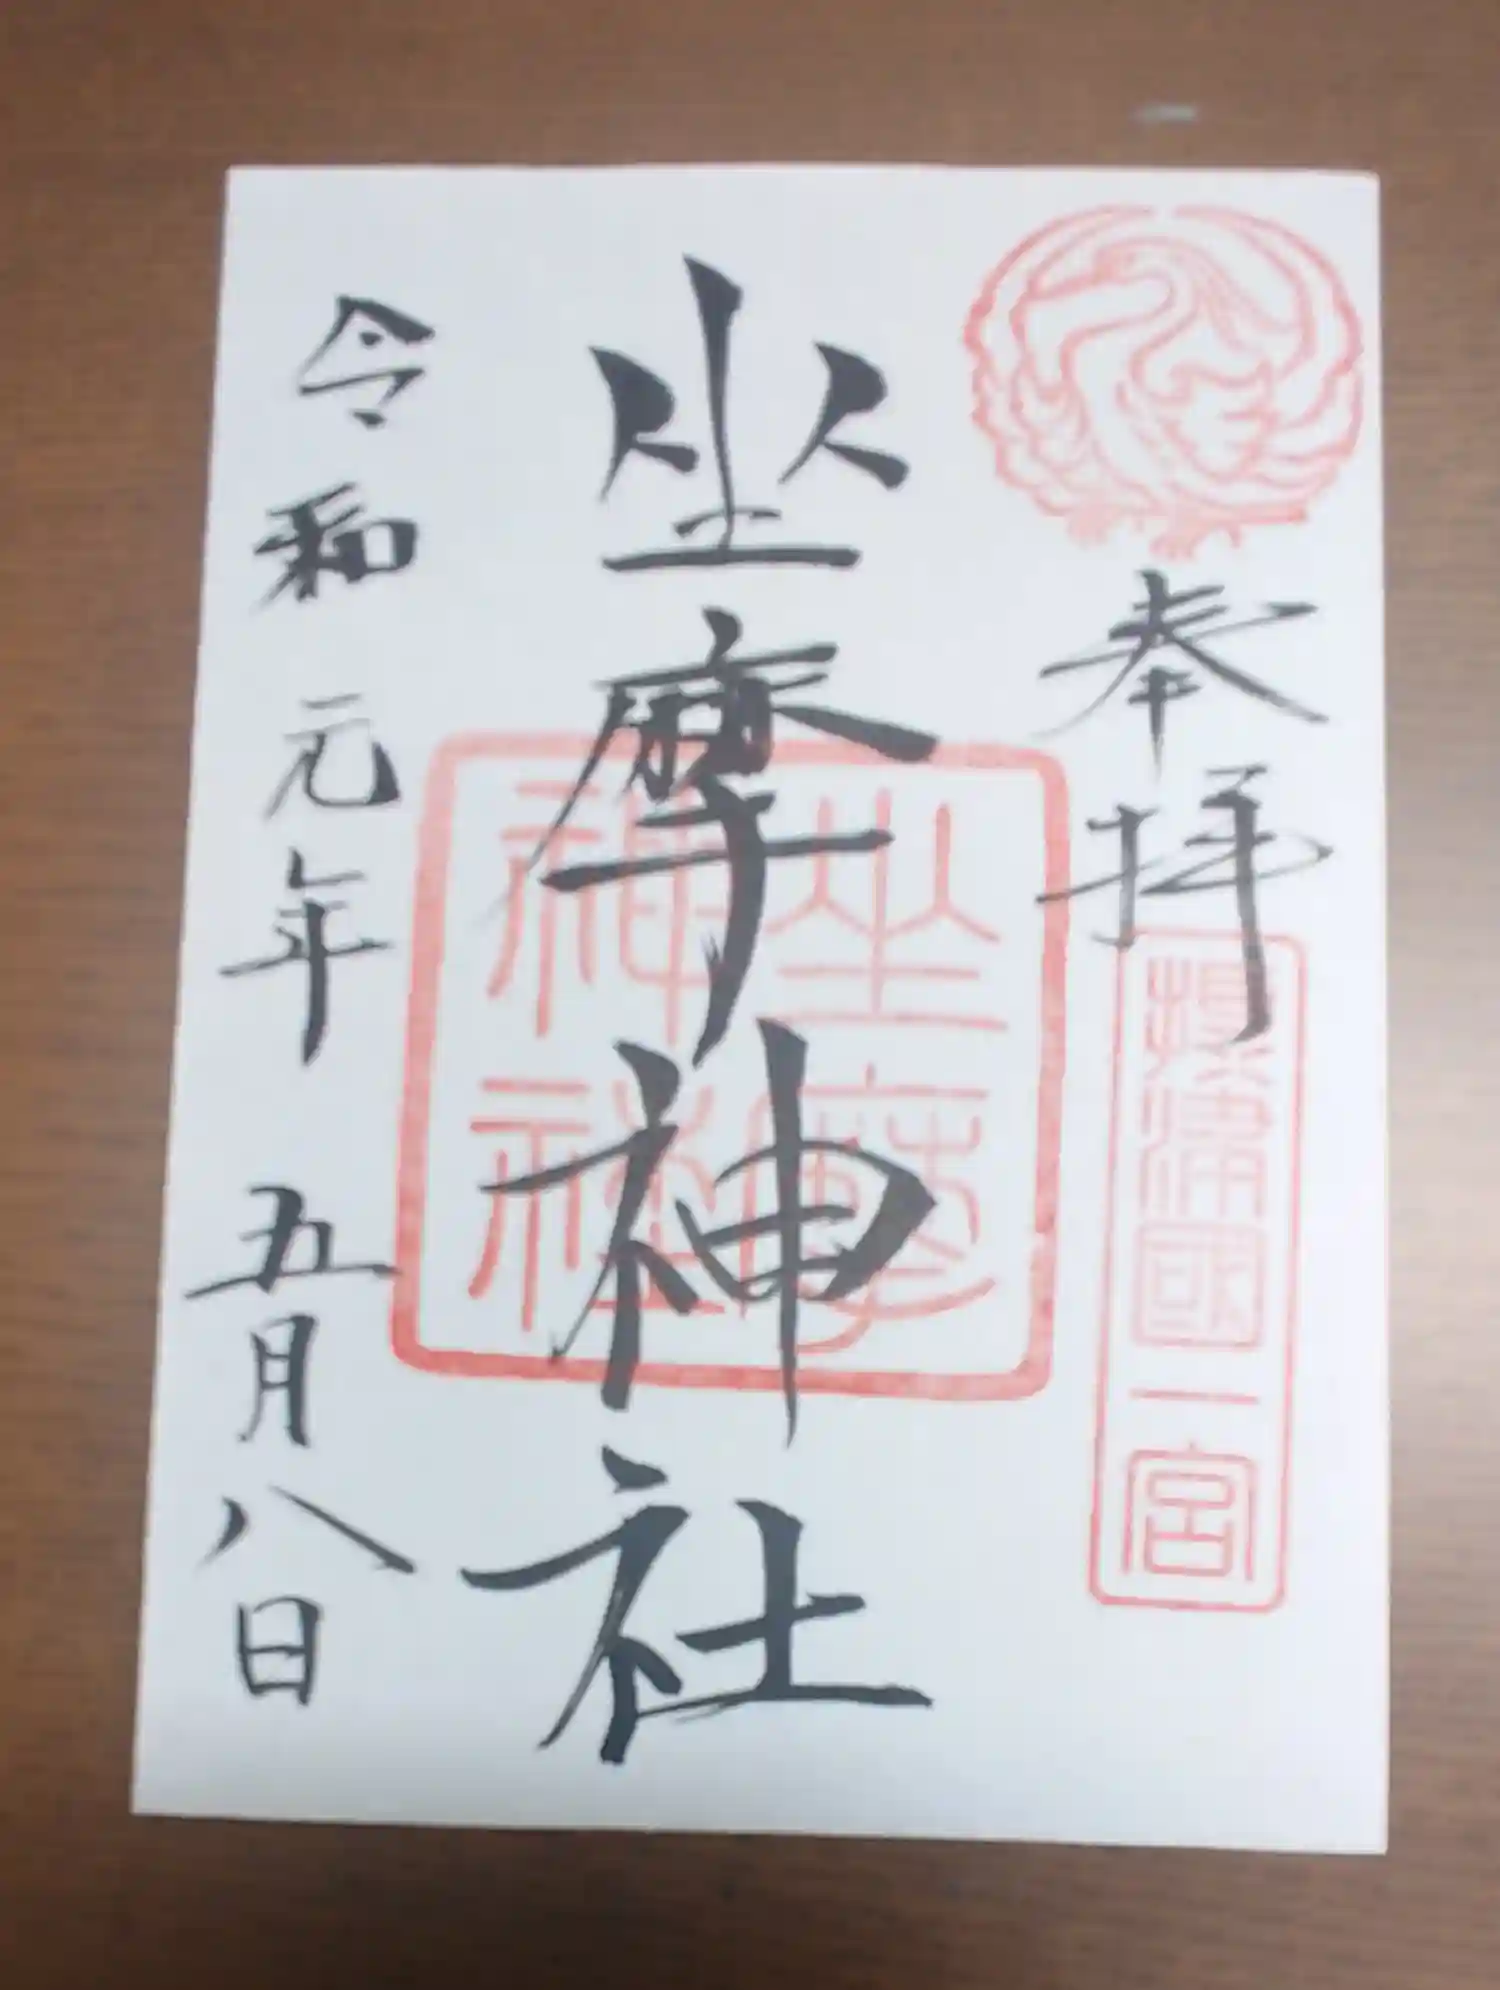 奉拝
摂津國一宮
坐摩神社
坐摩
神社
令和元年 五月八日